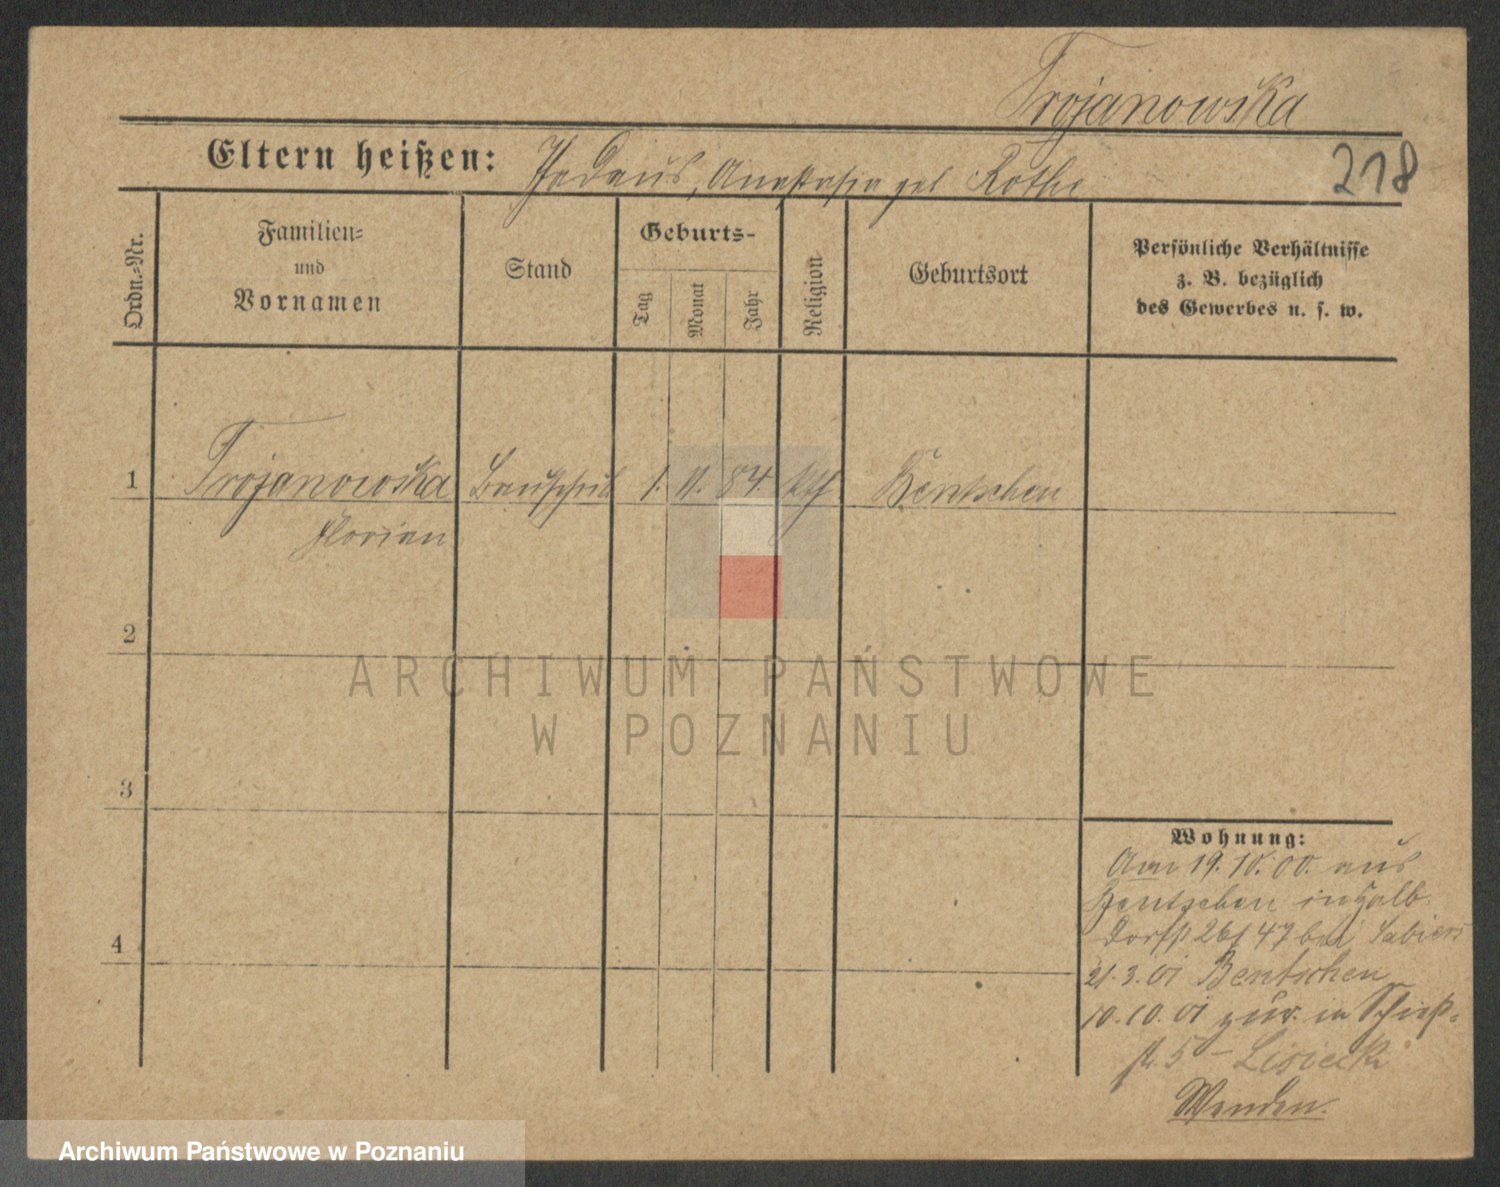 Trojanowska
Eltern heißen: Anastasia geb Rothe
218
Ordn.-Nr.
Familien-
und
Vornamen
Stand
Geburts-
Tag
Monat
Jahr
Religion
Geburtsort
Persönliche Verhältnisse
z. B. bezüglich
des Gewerbes u. s. w.
1 Trojanowska 1. 11. 84. kth Bentschen
Florian
2
3
4
ARCHIWUM PAŃSTWOWE
W POZNANIU
Wohnung:
Am 19. 10. 00. aus
Bentschen in Halb
dorfst 26/47 bei
21.3.01 Bentschen
10.10.01 zur. in Schieß-
st. 5 - Lisiecki
Wenden.
Archiwum Państwowe w Poznaniu